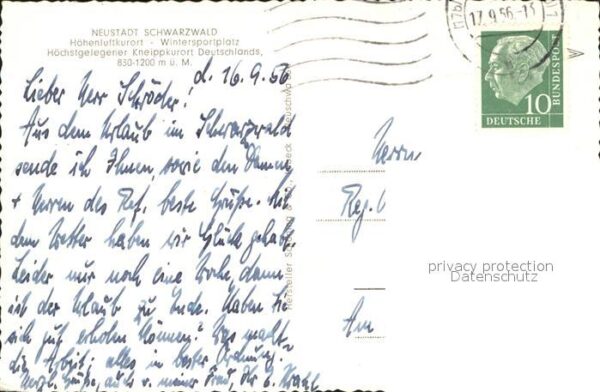 NEUSTADT SCHWARZWALD
Höhenluftkurort - Wintersportplatz
Höchstgelegener Kneippkurort Deutschlands,
830-1200 m ü. M.
d. 16.9.56
Lieber Herr Schröder!
Aus dem Urlaub im Schwarzwald
sende ich Ihnen, sowie den Damen
+ Herren des Ref. beste Grüße. Mit
dem Wetter haben wir Glück gehabt.
Leider nur noch eine Woche, dann
ist der Urlaub zu Ende. Haben Sie
sich gut erholen können? Was macht
die Arbeit; alles in bester Ordnung.
Herzl. Grüße, auch v. meiner Frau Ihr
Hersteller
17.9.56-13
10
DEUTSCHE
BUNDESPOST
Herrn
Reg.
Am
privacy protection
Datenschutz